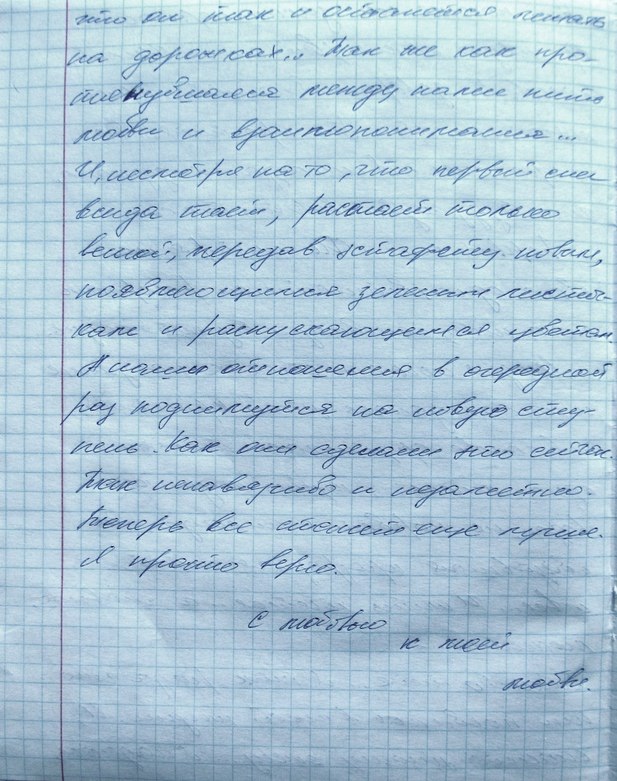 что он так и останется лежать
на дорожках... Так же как про-
тянувшаяся между нами нить
любви и взаимопонимания...
И, несмотря на то, что первый снег
всегда тает, растает только
весной, передав эстафету новым,
появляющимся зеленым листоч-
кам и распускающимся цветам.
А наши отношения в очередной
раз поднимутся на новую сту-
пень. Как они сделали это сейчас.
Так ненавязчиво и незаметно.
Теперь все станет еще лучше.
Я просто верю.
С любовью
к твоей
любви.